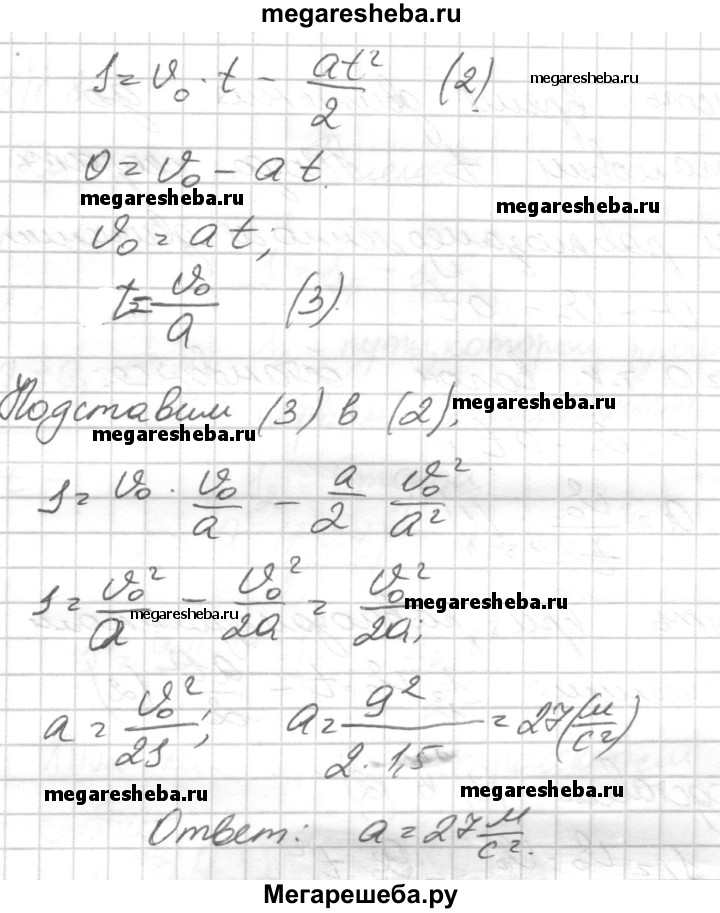 megaresheba.ru
S = v₀ · t − at²/2 (2) megaresheba.ru
0 = v₀ − at.
megaresheba.ru megaresheba.ru
v₀ = at;
t = v₀/a (3).
Подставим (3) в (2), megaresheba.ru
megaresheba.ru
S = v₀ · v₀/a − a/2 v₀²/a²
S = v₀²/a − v₀²/2a = v₀²/2a; megaresheba.ru
megaresheba.ru
a = v₀²/2S; a = 9²/2·1,5 = 27 (м/с²)
megaresheba.ru megaresheba.ru
Ответ: a = 27 м/с².
Мегарешеба.ру